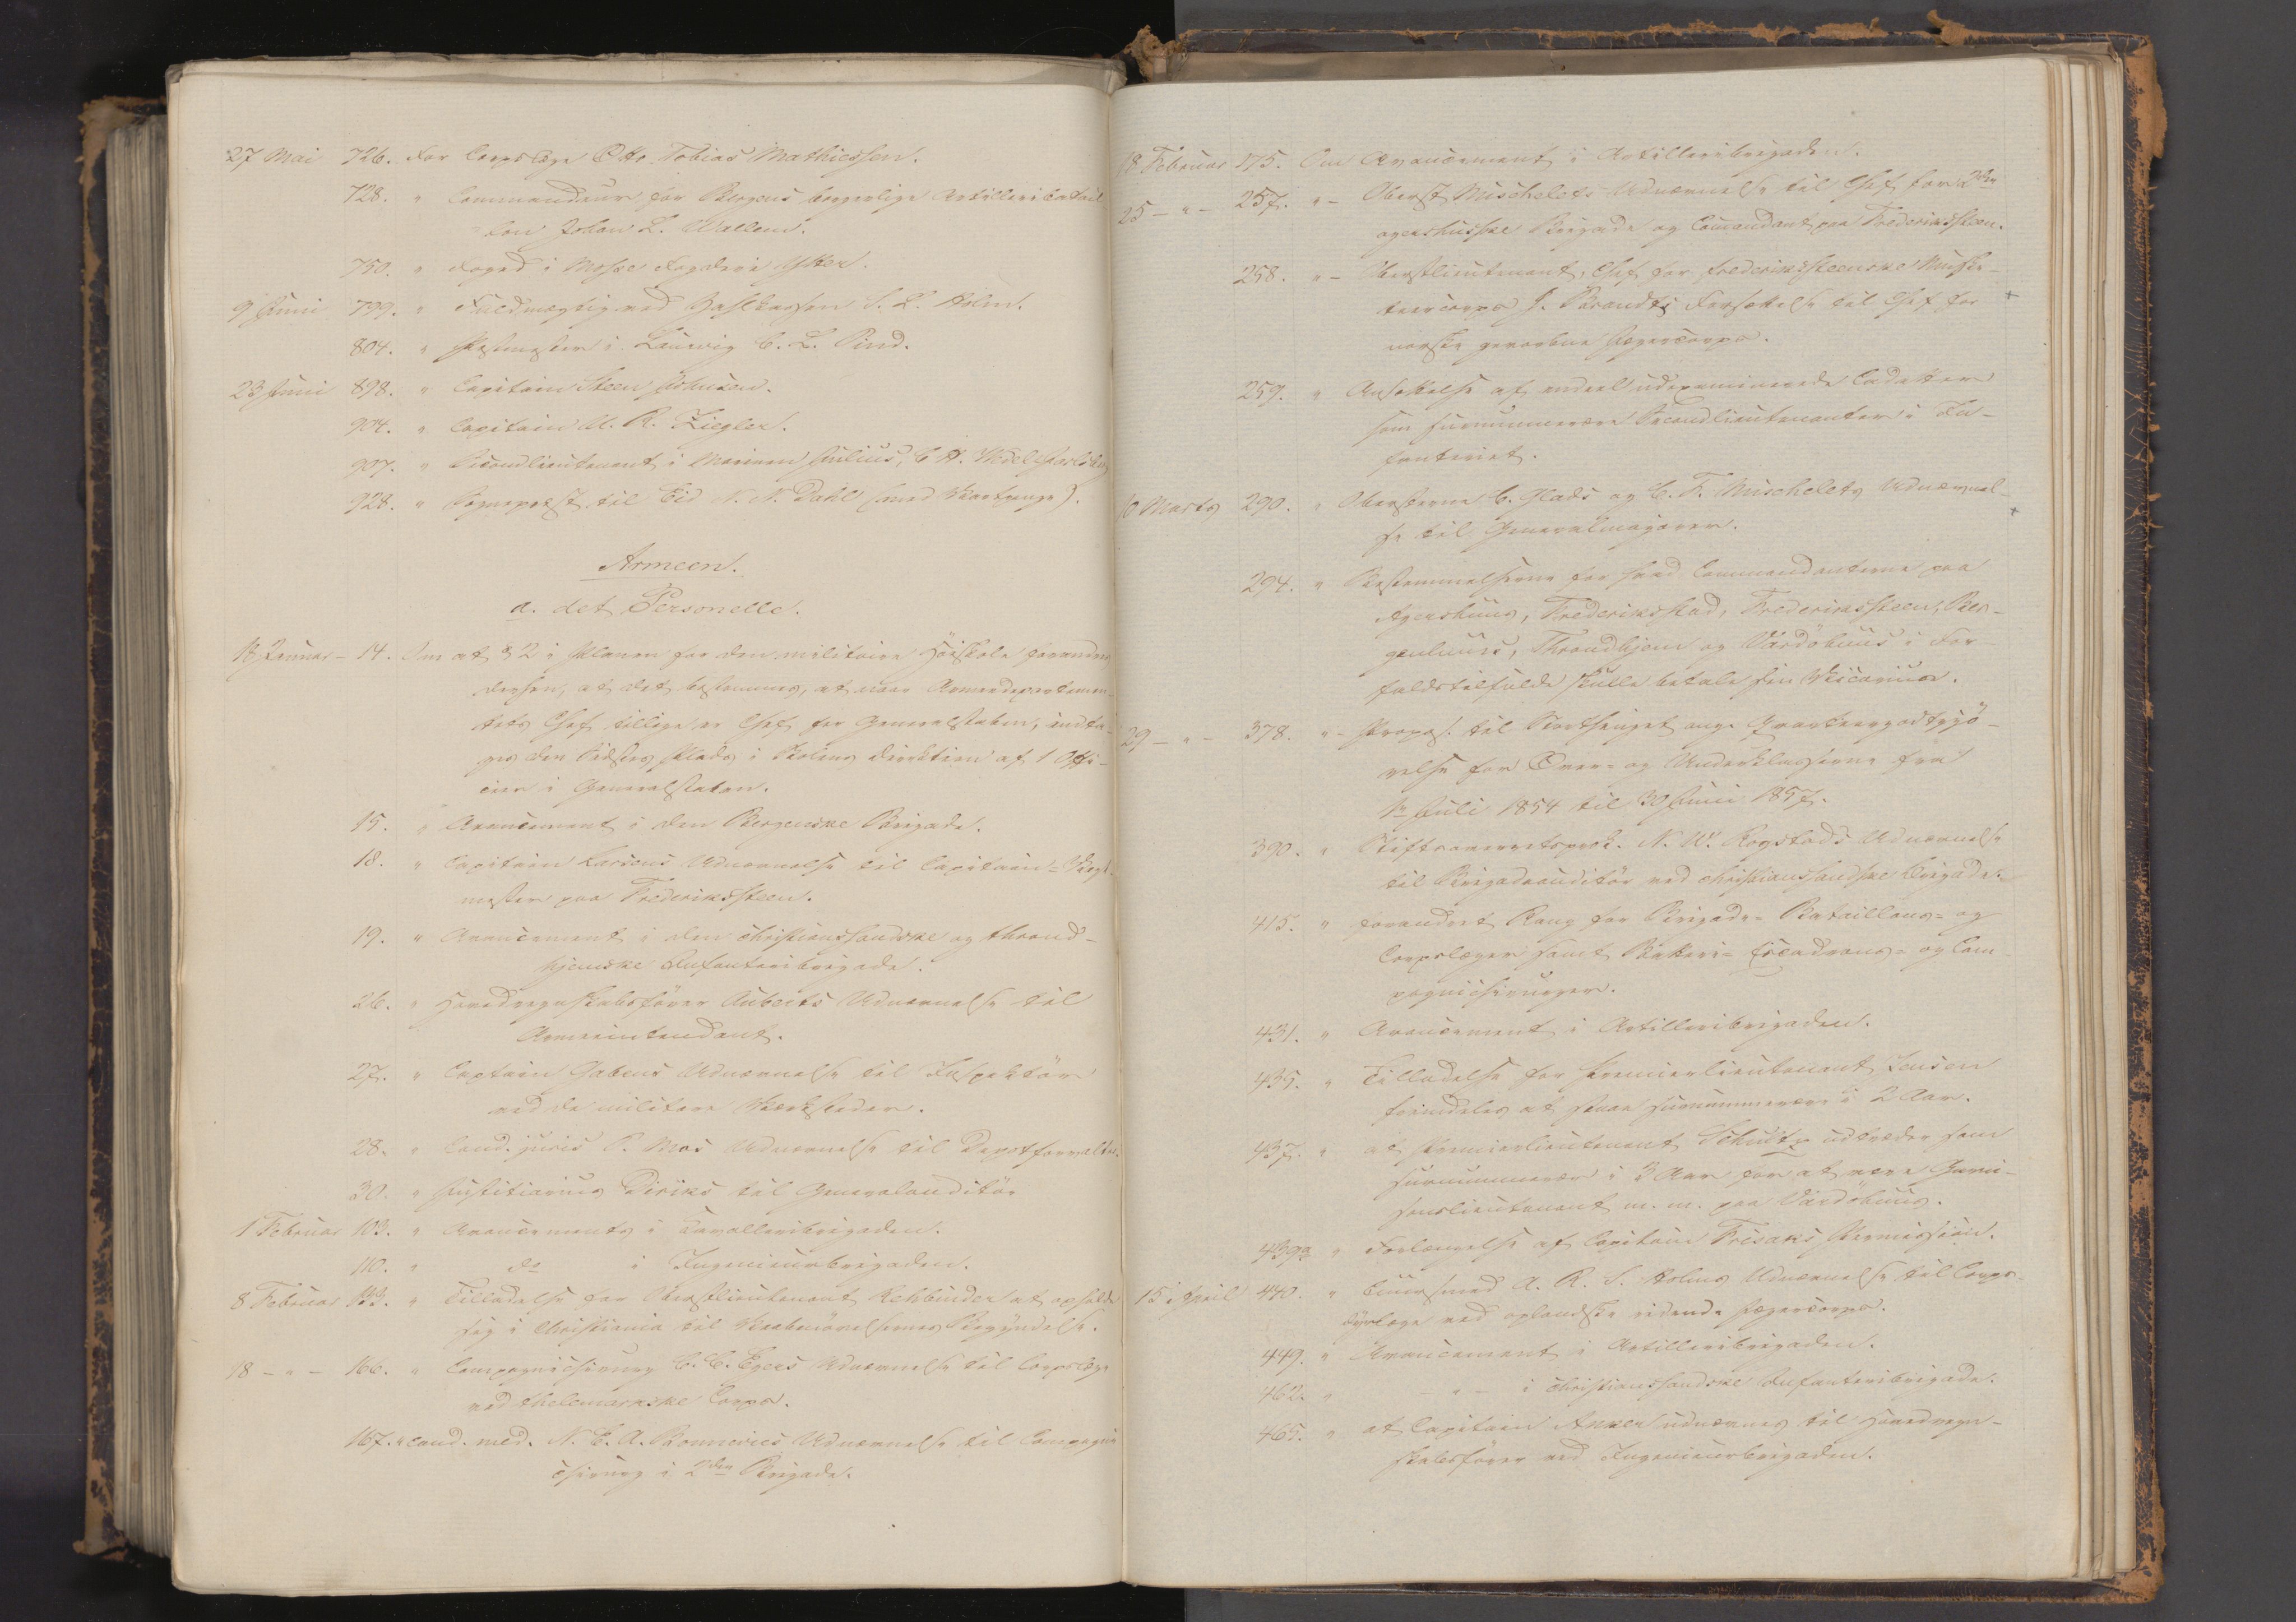 27 Mai 726. For Corpslæge Otto Tobias Mathiessen.
728. " Commandeur for Bergens borgerlige Artilleribatail
lon Johan L. Wallem.
750. " Foged i Mosse Fogderie Ytter.
9 Juni 799. " Fuldmægtig ved Zahlkassen S. L. Holm.
804. " Postmester i Laurvig C. L. Pind.
23 Juni 898. " Capitain Steen Johnsen.
904. " Capitain U. R. Ziegler.
907. " Secondlieutenant i Marinen Julius, C A. Wedel Jarlsberg
928. " Sogneprest til Eid N. N. Dahl (med ).
Armeen.
a. det Personelle.
13 Januar - 14. Om at § 2 i Planen for den militaire Høiskole forandres
derhen, at det bestemmes, at naar Armeedepartemen
tets Chef tillige er Chef for Generalstaben, indta-
ges den Sidstes Plads i Skolens Direktion af 1 Offi-
cier i Generalstaben.
15. " Avancement i den Bergenske Brigade.
18. " Capitain Larsens Udnævnelse til Capitain-Vagt-
mester paa Frederiksteen.
19. " Avancement i den christianssandske og thrond-
hjemske Infanteribrigade.
26. " Hovedregnskabsfører Auberts Udnævnelse til
Armeeintendant.
27. " Captain Gabens Udnævnelse til Inspektør
ved de militære Værksteder.
28. " Cand. juris P. Moes Udnævnelse til Depotforvalter.
30. " Justitiarius Diriks til Generalauditør
1 Februar 103. " Avancements i Cavalleribrigaden.
110. " do i Ingenieurbrigaden.
8 Februar 133. " Tilladelse for Oberstlieutenant Rehbinder at opholde
sig i Christiania til Vaabenøvelsernes Begyndelse.
18 - " - 166. " Compagniechirurg C. C. Egers Udnævnelse til Corpslæge
ved thelemarkske Corps.
167. " Cand. med. N. E. A. Bonnevies Udnævnelse til Compagnie
chirurg i 2den Brigade.
18 Februar 175. Om Avancement i Artilleribrigaden.
25 - " - 257. " - Oberst Mischelets Udnævnelse til Chef for 2den
agershusske Brigade og Comandant paa Frederiksteen.
258. " - Oberstlieutenant, Chef for frederiksteenske Muske-
teercorps J. Brandts Forsættelse til Chef for +
norske gevorbne Jægercorps.
259. " Ansættelse af endeel udexaminerede Cadetter
som surnummeraire Secondlieutenanter i In-
fanteriet.
10 Marts 290. " Obersterne C. Glads og C. F. Mischelets Udnævnel- +
se til Generalmajorer.
294. " Bestemmelserne for hvad Commandanterne paa
Agershuus, Frederikstad, Frederiksteen, Ber-
genhuus, Throndhjem og Vardöhuus i For
faldstilfælde skulle betale sin Vicarius.
29 - " - 378. " - Propos. til Storthinget ang. Qvarteergodtgjö-
relse for Over- og Underklasserne fra
1 Juli 1854 til 30 Juni 1857.
390. " Stiftsoverretsprok. N. W. Rogstads Udnævnelse
til Brigadeauditör ved christianssandske Brigade.
415. " forandret Rang for Brigade- Bataillons- og
Corpslæger samt Batteri- Escadrons- og Com-
pagniechirurger.
431. " Avancement i Artilleribrigaden.
435. " Tilladelse for Premierlieutenant Jensen
fremdeles at staae surnummerair i 2 Aar.
437. " at Premierlieutenant Schultz udtræder som
surnummerair i 3 Aar for at være Garni-
sonslieutenant m. m. paa Vardöhuus.
439a " Forlængelse af Capitain Frisaks Permission.
15 April 440. " Cuursmed A. R. S. Holms Udnævnelse til Corps-
dyrlæge ved oplandske ridende Jægercorps.
449. " Avancement i Artilleribrigaden.
462. " " - i christianssandske Infanteribrigade.
465. " at Capitain Anker udnævnes til Hovedregn-
skabsfører ved Ingenieurbrigaden.